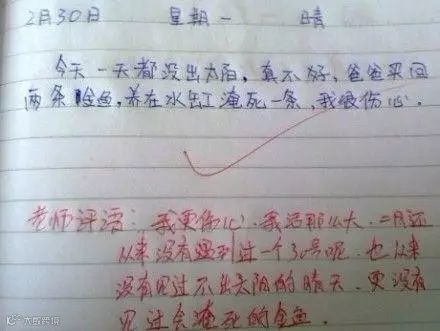 2月30日 星期一 晴
今天一天都没出太阳,真不好,爸爸买回
两条金鱼,养在水缸淹死一条,我很伤心.
老师评语:我更伤心.我活那么大,二月还
从来没有遇到过一个30号呢.也从来
没有见过不出太阳的晴天.更没有
见过会淹死的金鱼.
大数跨境